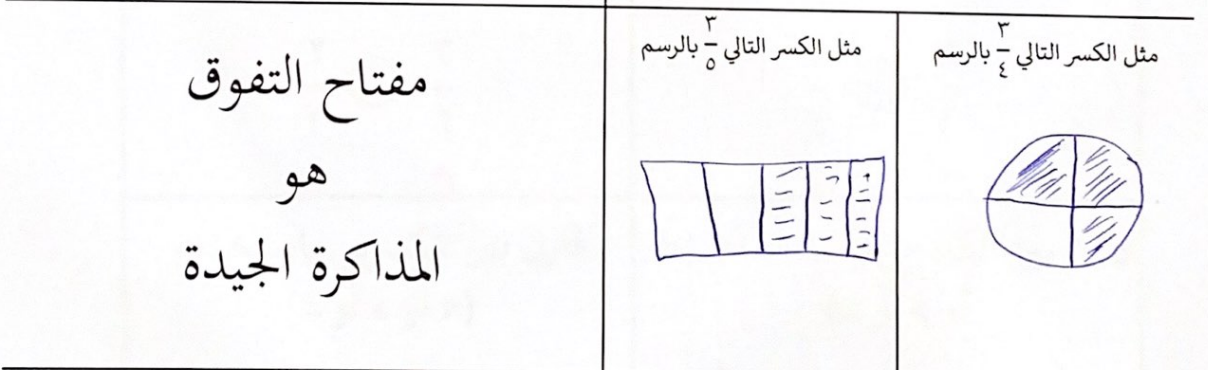 مثل الكسر التالي ٣/٤ بالرسم
مثل الكسر التالي ٣/٥ بالرسم
مفتاح التفوق
هو
المذاكرة الجيدة